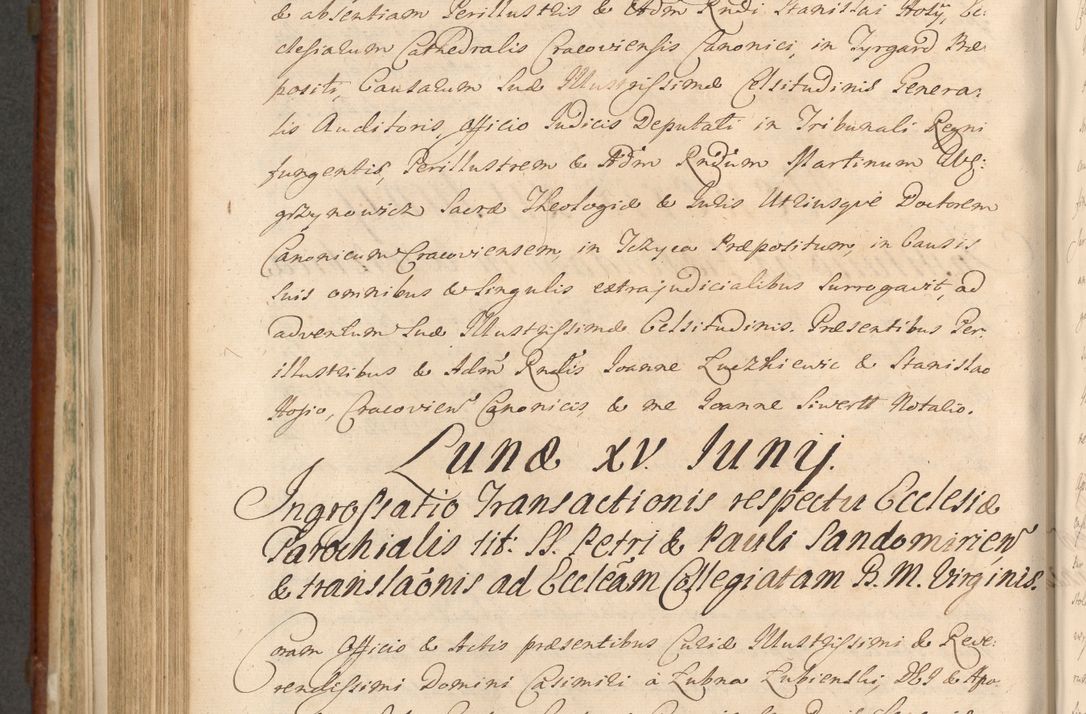 & absentiam Perillustris & Adm Rndi Stanislai Hosij, Ec:
clesiarum Cathedralis Cracoviensis Canonici, in Tyrgard Præ:
positi, Causarum Suæ Illustrissimæ Celsitudinis Genera:
lis Auditoris, Officio Iudicis Deputati in Tribunali Regni
fungentis, Perillustrem & Adm Rndum Martinum Węg:
grzynowicz Sacræ Theologiæ & Iuris Utriusque Doctorem
Canonicum Cracoviensem, in Tczyca Præpositum, in Causis
suis omnibus & Singulis extrajudicialibus surrogavit, ad
adventum Suæ Illustrissimæ Celsitudinis. Præsentibus Per:
illustribus & Adm Rndis Ioanne Łuczkiewic & Stanislao
Hosio, Cracovien Canonicis, & me Ioanne Siwertt Notario.
Lunæ XV. Iunij.
Ingrossatio Transactionis respectu Ecclesiæ
Parochialis tit: SS. Petri & Pauli Sandomirien
& translaõnis ad Eccleãm Collegiatam B. M. Virginis.
Coram Officio & Actis præsentibus Curiæ Illustrissimi & Reve:
rendissimi Domini Casimiri à Łubna Łubienski, DEI & Apo: